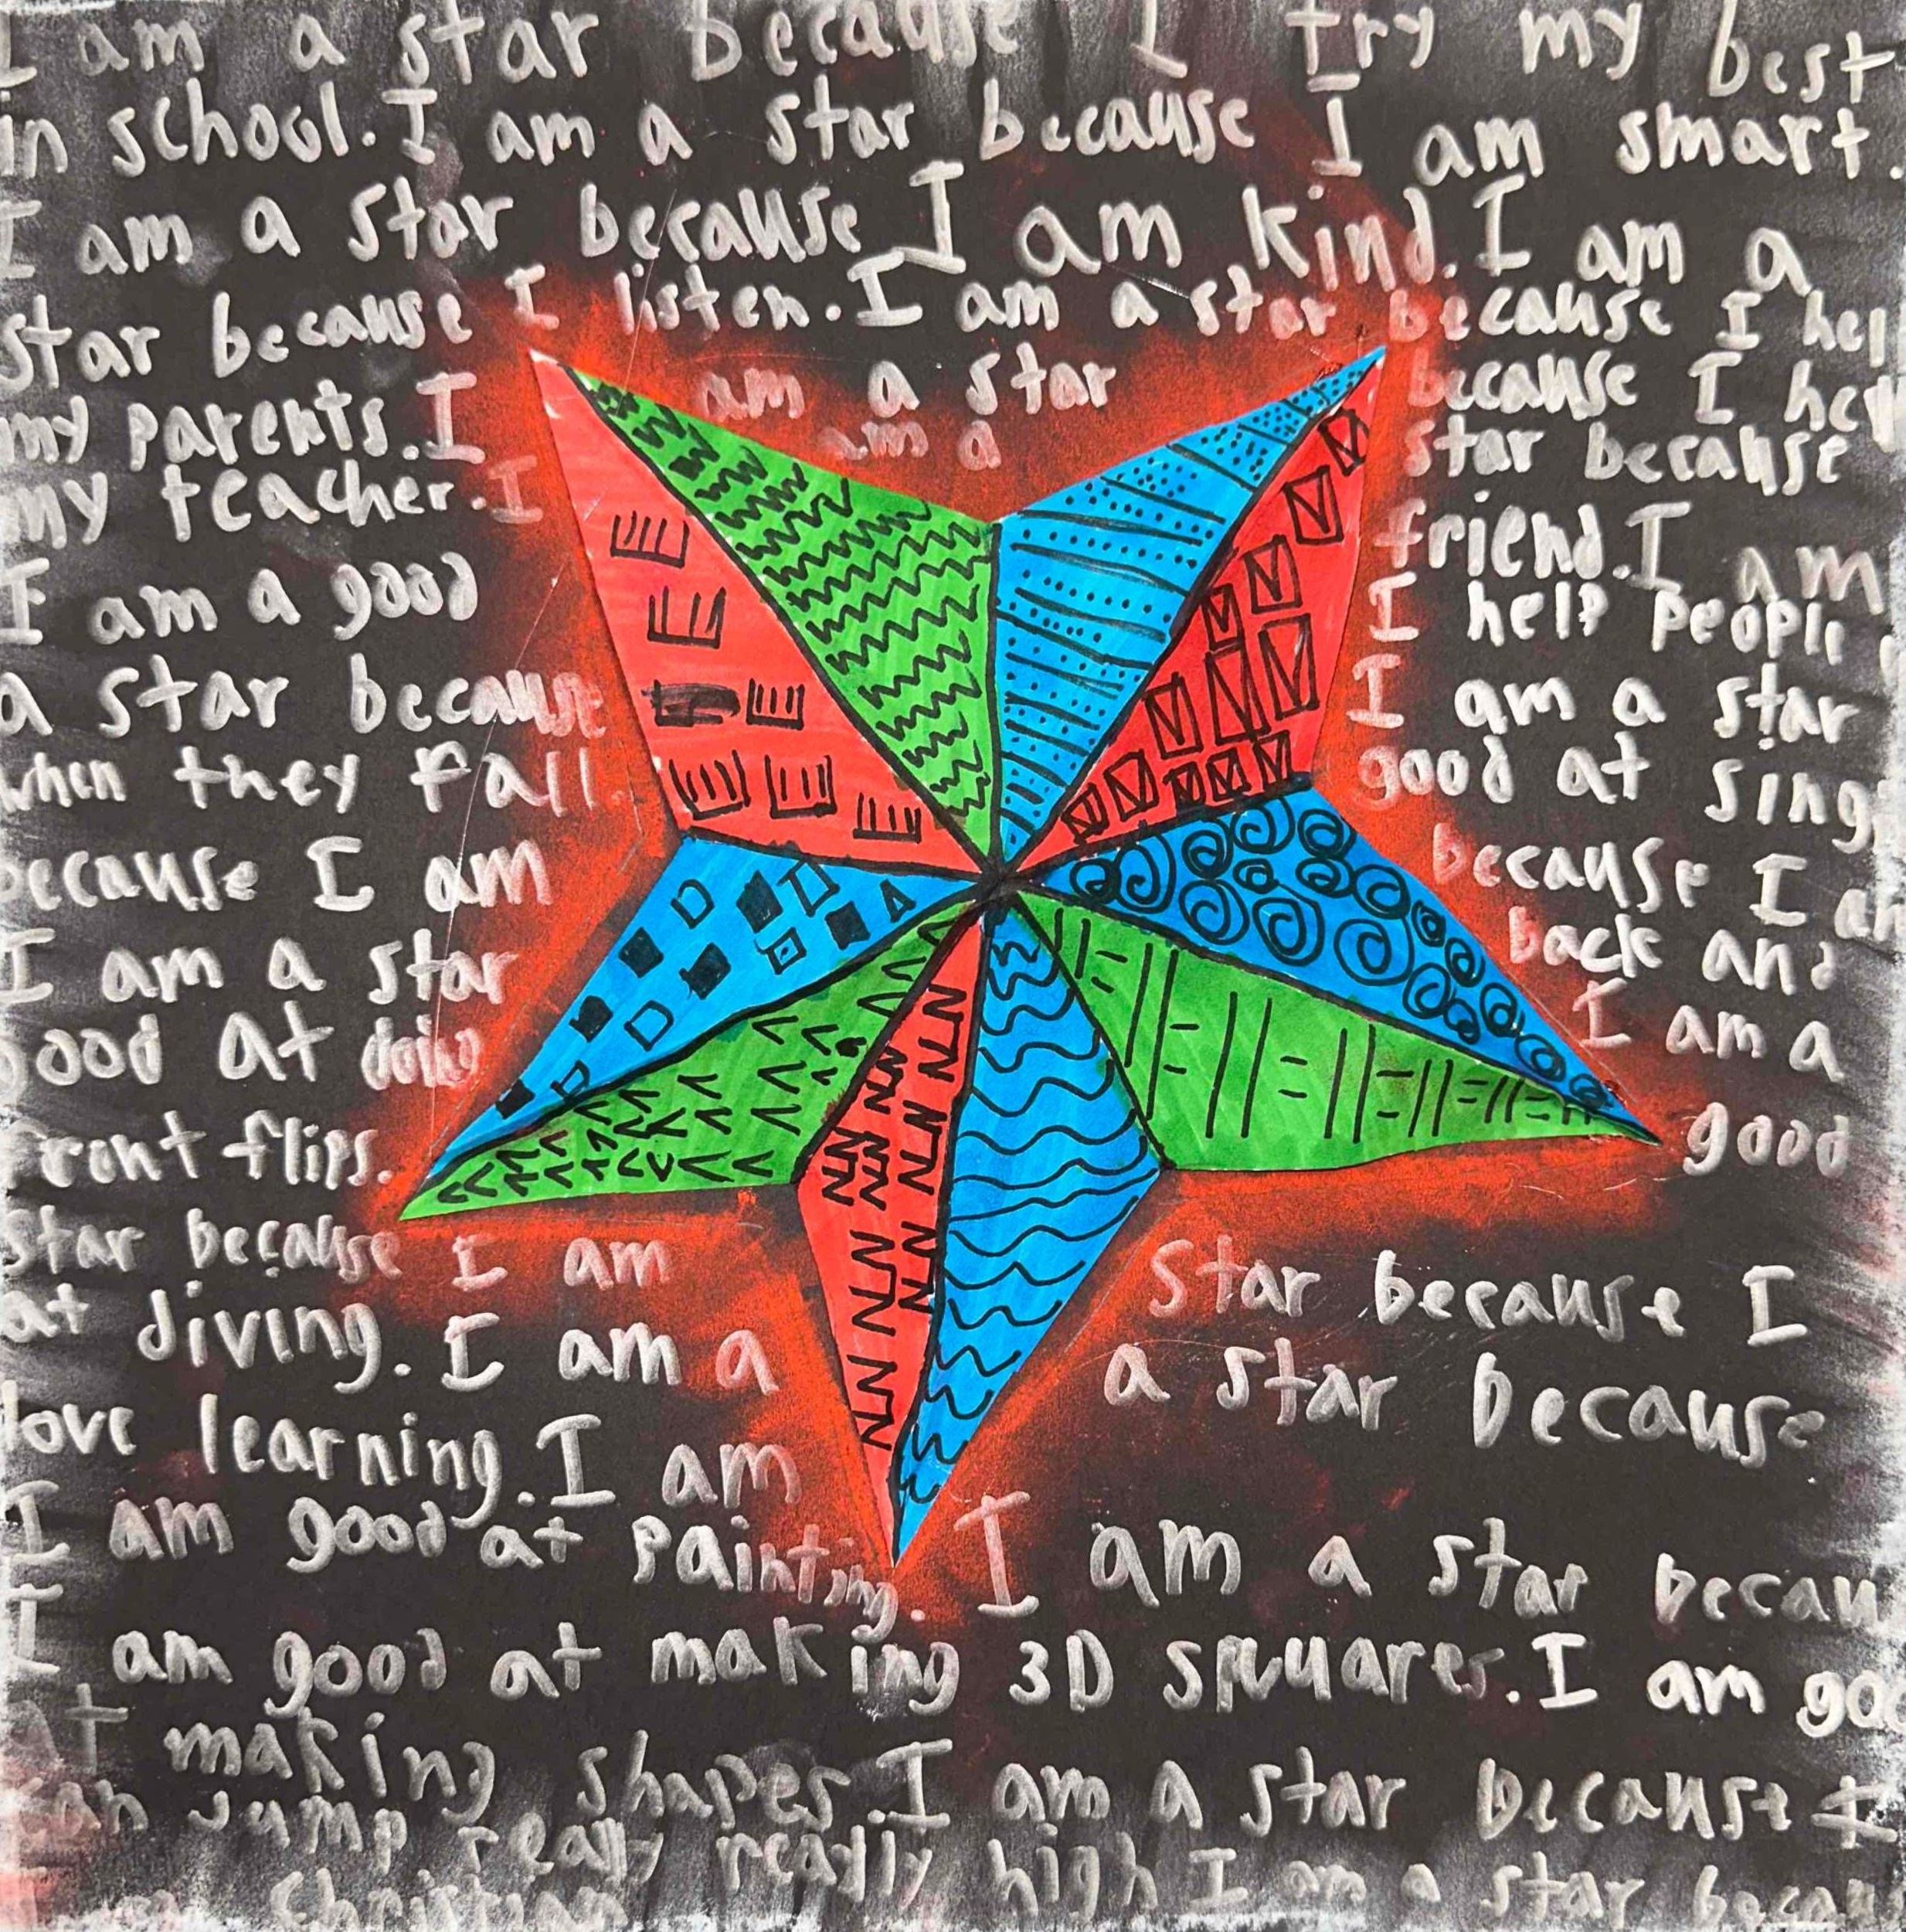 I am a star because I try my best
in school. I am a star because I am smart.
I am a star because I am kind. I am a
star because I listen. I am a star because I hel
my parents. I am a star because I hel
my teacher. I am a star because
I am a good friend. I am
a star because I help people
when they fall. I am a star
because I am good at sing
I am a star because I am
good at doing back and
front flips. I am a
star because I am good
at diving. I am a star because I
love learning. I am a star because
I am good at painting. I am a star becau
I am good at making 3D squares. I am goo
at making shapes. I am a star because I
can jump really really high I am a star becaus
Christian